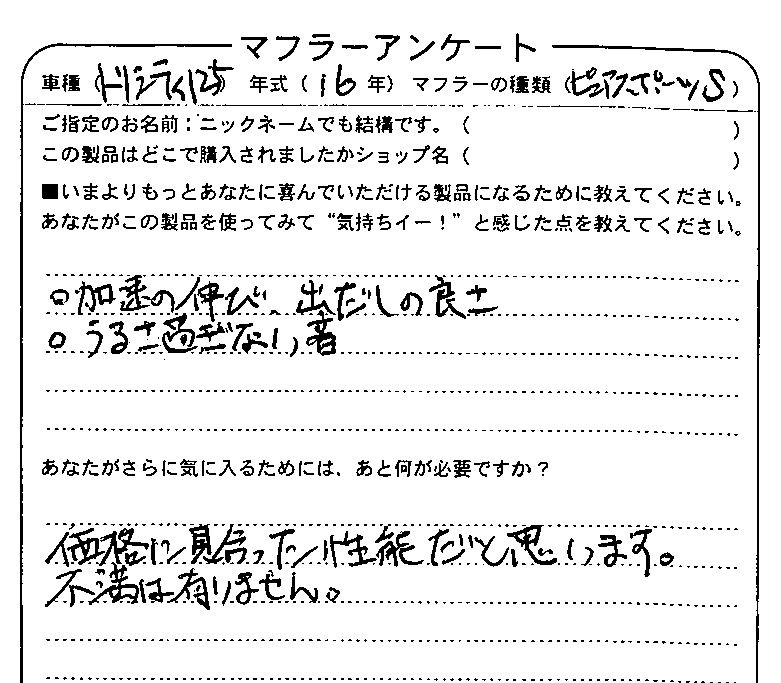 マフラーアンケート
車種（トリシティ125）年式（16年）マフラーの種類（ピュアスポーツS）
ご指定のお名前：ニックネームでも結構です。（　　　）
この製品はどこで購入されましたかショップ名（　　　）
■いまよりもっとあなたに喜んでいただける製品になるために教えてください。
あなたがこの製品を使ってみて“気持ちイー！”と感じた点を教えてください。
○加速の伸び、出だしの良さ
○うるさ過ぎない音
あなたがさらに気に入るためには、あと何が必要ですか？
価格に見合った性能だと思います。
不満は有りません。